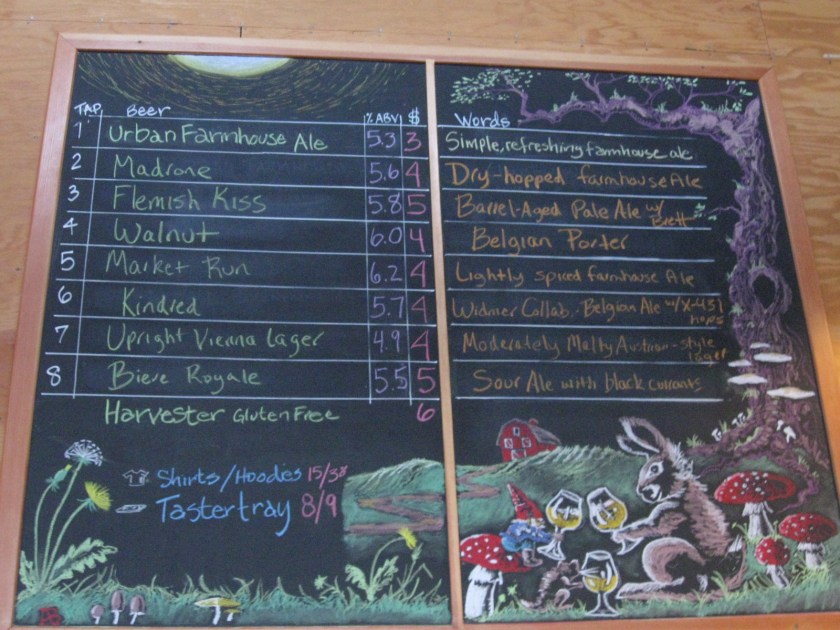 TAP Beer % ABV $ Words
1 Urban Farmhouse Ale 5.3 3 Simple, refreshing farmhouse ale
2 Madrone 5.6 4 Dry-hopped farmhouse Ale
3 Flemish Kiss 5.8 5 Barrel-Aged Pale Ale w/ Brett
4 Walnut 6.0 4 Belgian Porter
5 Market Run 6.2 4 Lightly spiced farmhouse Ale
6 Kindred 5.7 4 Widmer Collab. - Belgian Ale w/X-431 hops
7 Upright Vienna Lager 4.9 4 Moderately Malty Austrian-style lager
8 Biere Royale 5.5 5 Sour Ale with black currants
Harvester Gluten Free 6
Shirts/Hoodes 15/38
Taster tray 8/9